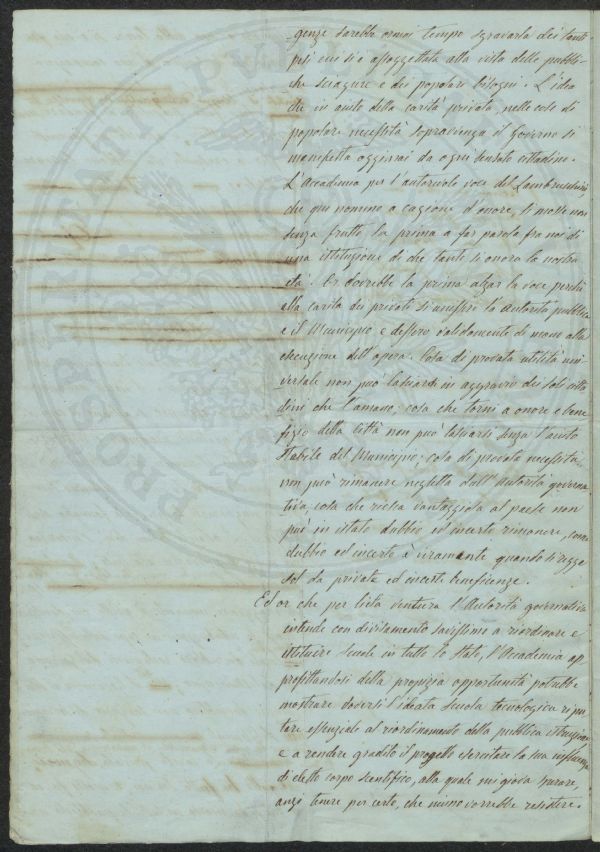 -genze sarebbe ormai tempo sgravarla dei tanti
pesi cui si è assoggettata alla vista delle pubbli-
che sciagure e dei popolari bisogni. L'idea
che in aiuto della carità privata, nelle cose di
popolare necessità sopravvenga il Governo si
manifesta oggimai da ogni sensato cittadino.
L'Accademia per l'autorevole voce del Lambruschini,
che qui nomino a cagione d'onore, si mosse non
senza frutto la prima a far parola fra noi di
una istituzione di che tanto si onora la nostra
età. Or dovrebbe la prima alzar la voce perchè
alla carità dei privati si unissero l'autorità pubblica
e il Municipio e dessero validamente di mano alla
esecuzione dell'opera. Cosa di provata utilità uni-
versale non può lasciarsi in aggravio dei soli citta
dini che l'amano; cosa che torni a onore e bene
fizio della Città non può lasciarsi senza l'aiuto
stabile del Municipio; cosa di provata necessità
non può rimanere negletta dall'Autorità governa
tiva; cosa che riesca vantaggiosa al paese non
può in istato dubbio ed incerto rimanere, come
dubbio ed incerto è veramente quando si regge
sol da private ed incerte beneficenze.
Ed or che per lieta ventura l'Autorità governativa
intende con divisamento savissimo a riordinare e
istituire Scuole in tutto lo Stato, l'Accademia ap
profittandosi della propizia opportunità potrebbe
mostrare doversi l'ideata Scuola tecnologica ripu
tare essenziale al riordinamento della pubblica istruzione
e a rendere gradito il progetto esercitare la sua influenza
di eletto corpo scientifico, alla quale mi giova sperare,
anzi tenere per certo, che niuno vorrebbe resistere.
PROSPERITATI PUBLICAE